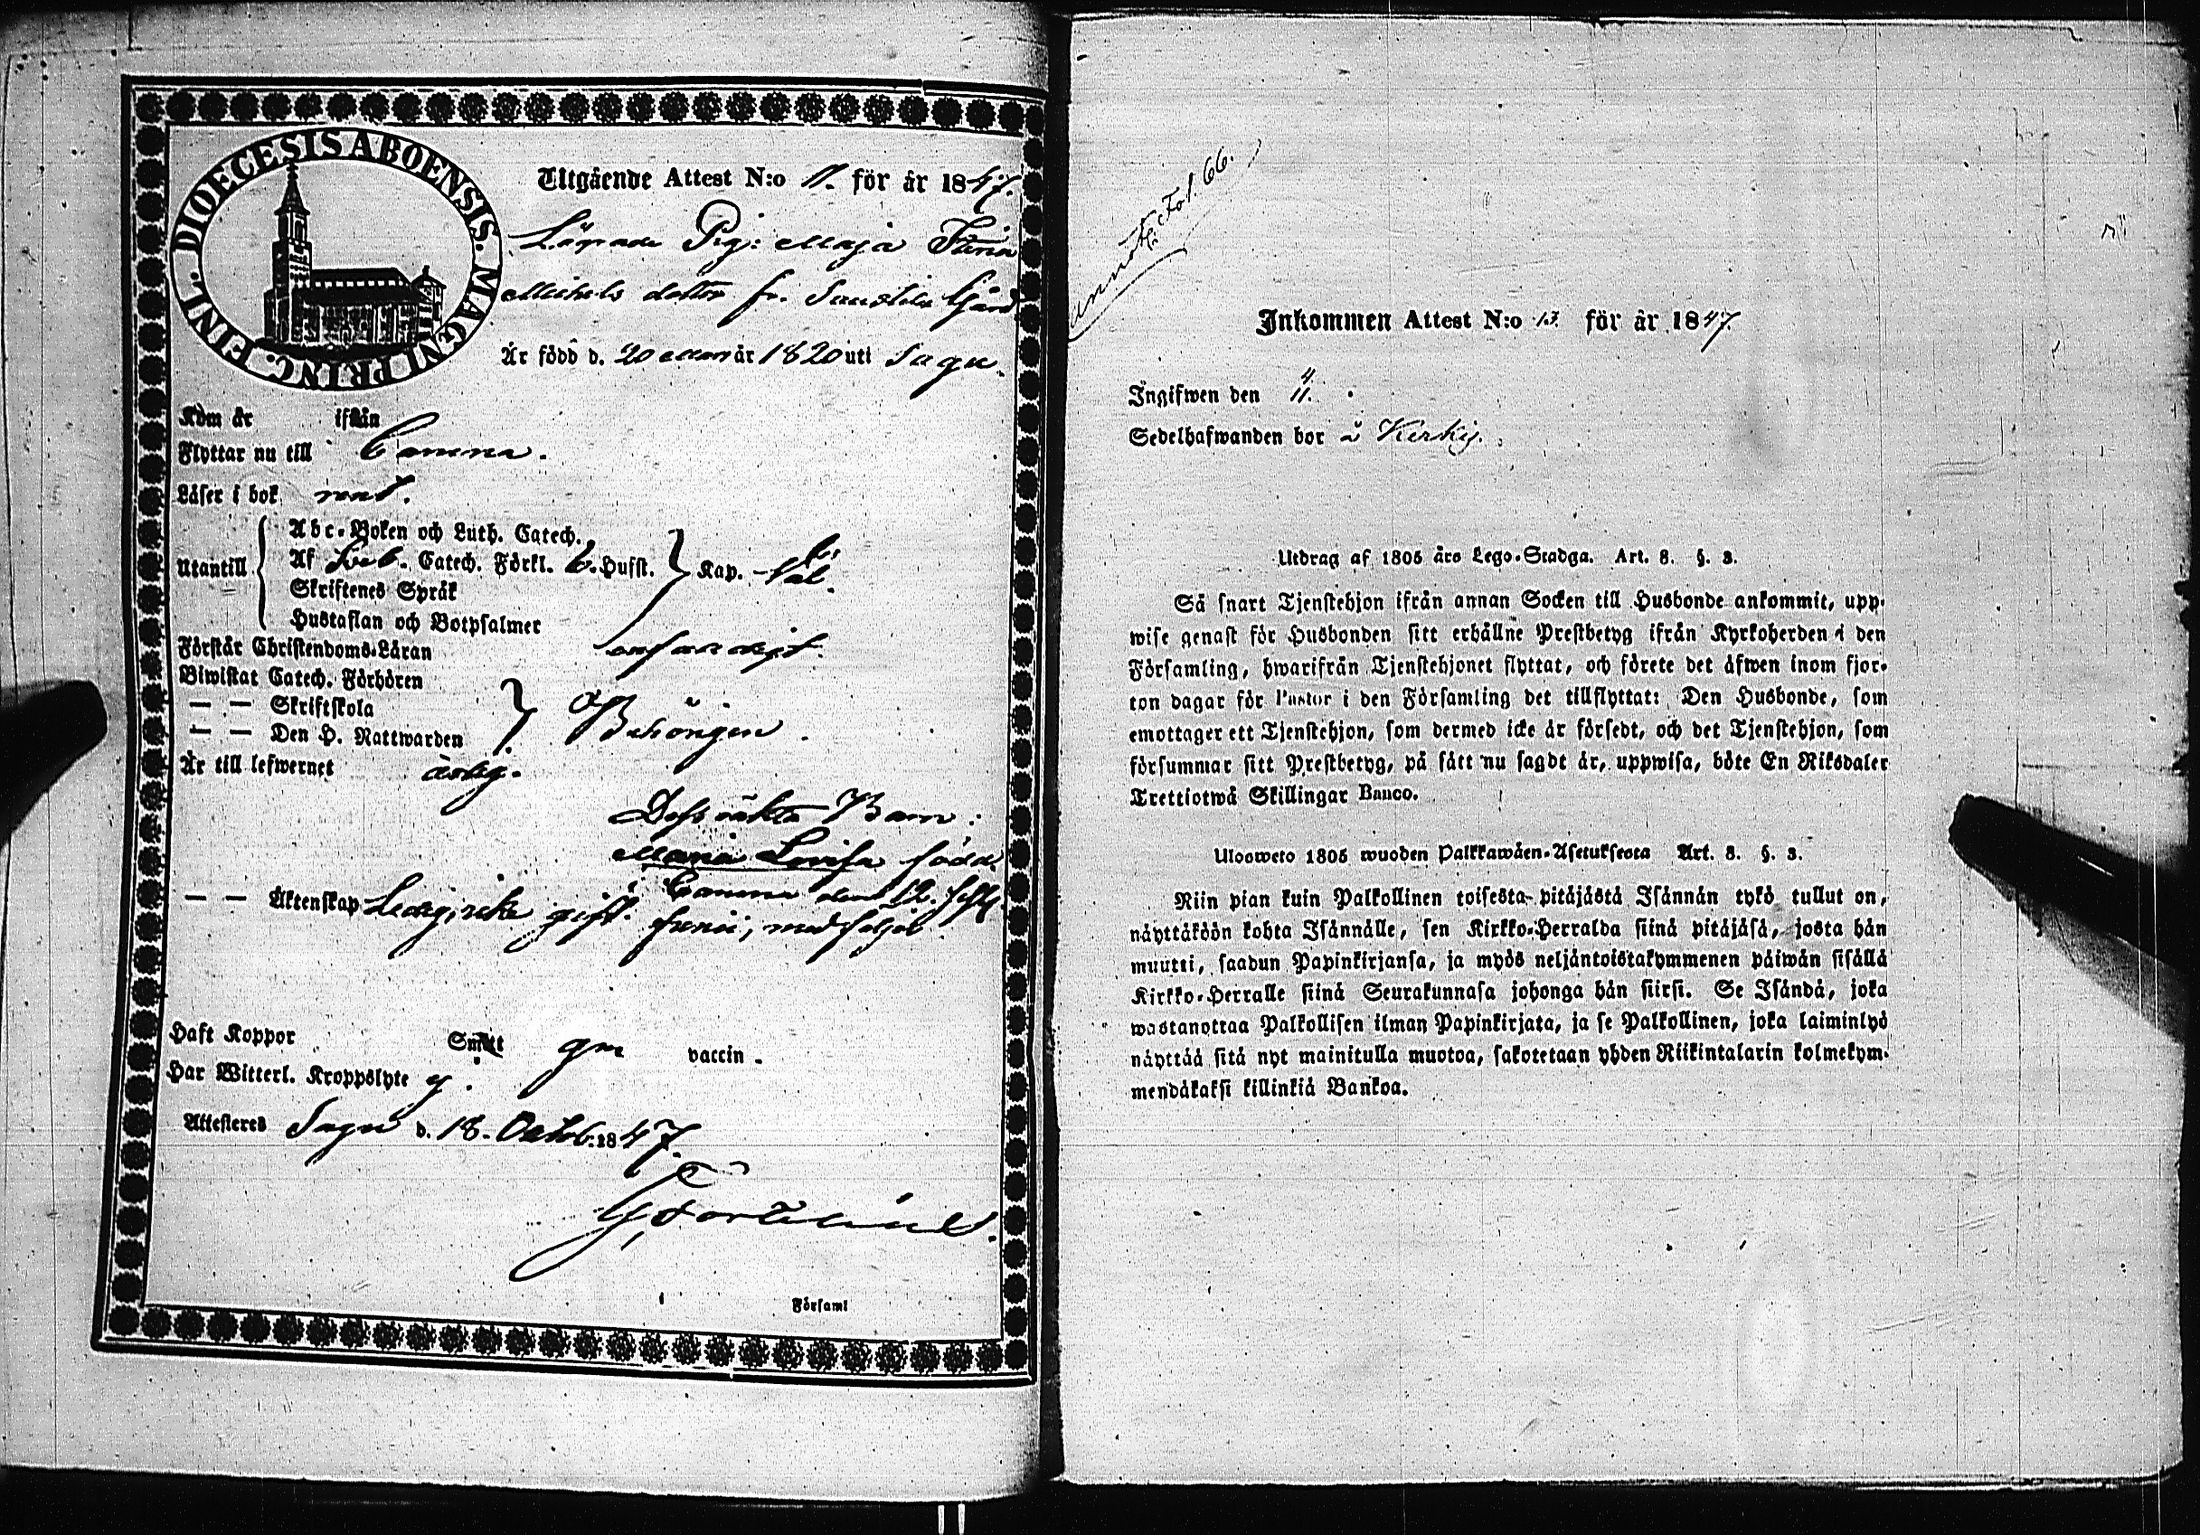 DIOECESIS ABOENSIS. MAGNI PRINC. FINL.
Utgående Attest N:o 11. för år 1847.
Pig: Maja Stina
Michels dotter fr. Gård
Är född d. 20 Mars år 1820 uti Sagu.
Kom år ifrån
Flyttar nu till Caruna.
Läser i bok
Utantill
Abc-Boken och Luth. Catech.
Af Sveb. Catech. Förkl. o. Hufst. Kap. väl
Skriftenes Språk
Hustaflan och Botpsalmer
Förstår Christendoms-Läran
Biwistat Catech. Förhören
— — Skriftskola
— — Den H. Nattwarden
Behörigen.
Är till lefwernet ärlig.
Dess oäkta Barn:
Maria Lovisa född i
Caruna den 12.
— — Äktenskap Ledig, icke gift.
Haft Koppor Smitt gm vaccin.
Har Witterl. Kroppslyte ej.
Attesteras Sagu d. 18. Octob. 1847.
Församl
Annot. Fol. 66.
Inkommen Attest N:o 13. för år 1847.
Ingifwen den 4/11.
Sedelhafwanden bor å Kerkis.
Utdrag af 1805 års Lego-Stadga. Art. 8. §. 3.
Så snart Tjenstehjon ifrån annan Socken till Husbonde ankommit, upp-
wise genast för Husbonden sitt erhållne Prestbetyg ifrån Kyrkoherden i den
Församling, hwarifrån Tjenstehjonet flyttat, och förete det äfwen inom fjor-
ton dagar för Pastor i den Församling det tillflyttat: Den Husbonde, som
emottager ett Tjenstehjon, som dermed icke är försedt, och det Tjenstehjon, som
försummar sitt Prestbetyg, på sätt nu sagdt är, uppwisa, böte En Riksdaler
Trettiotwå Skillingar Banco.
Ulosweto 1805 wuoden Palkkawäen-Asetuksesta Art. 8. §. 3.
Niin pian kuin Palkollinen toisesta pitäjästä Isännän tykö tullut on,
näyttäköön kohta Isännälle, sen Kirkko-Herralda siinä pitäjäsä, josta hän
muutti, saadun Papinkirjansa, ja myös neljäntoistakymmenen päiwän sisällä
Kirkko-Herralle siinä Seurakunnasa johonga hän siirsi. Se Isändä, joka
wastanottaa Palkollisen ilman Papinkirjata, ja se Palkollinen, joka laiminlyö
näyttää sitä nyt mainitulla muotoa, sakotetaan yhden Riikintalarin kolmekym-
mendäkaksi killinkiä Bankoa.